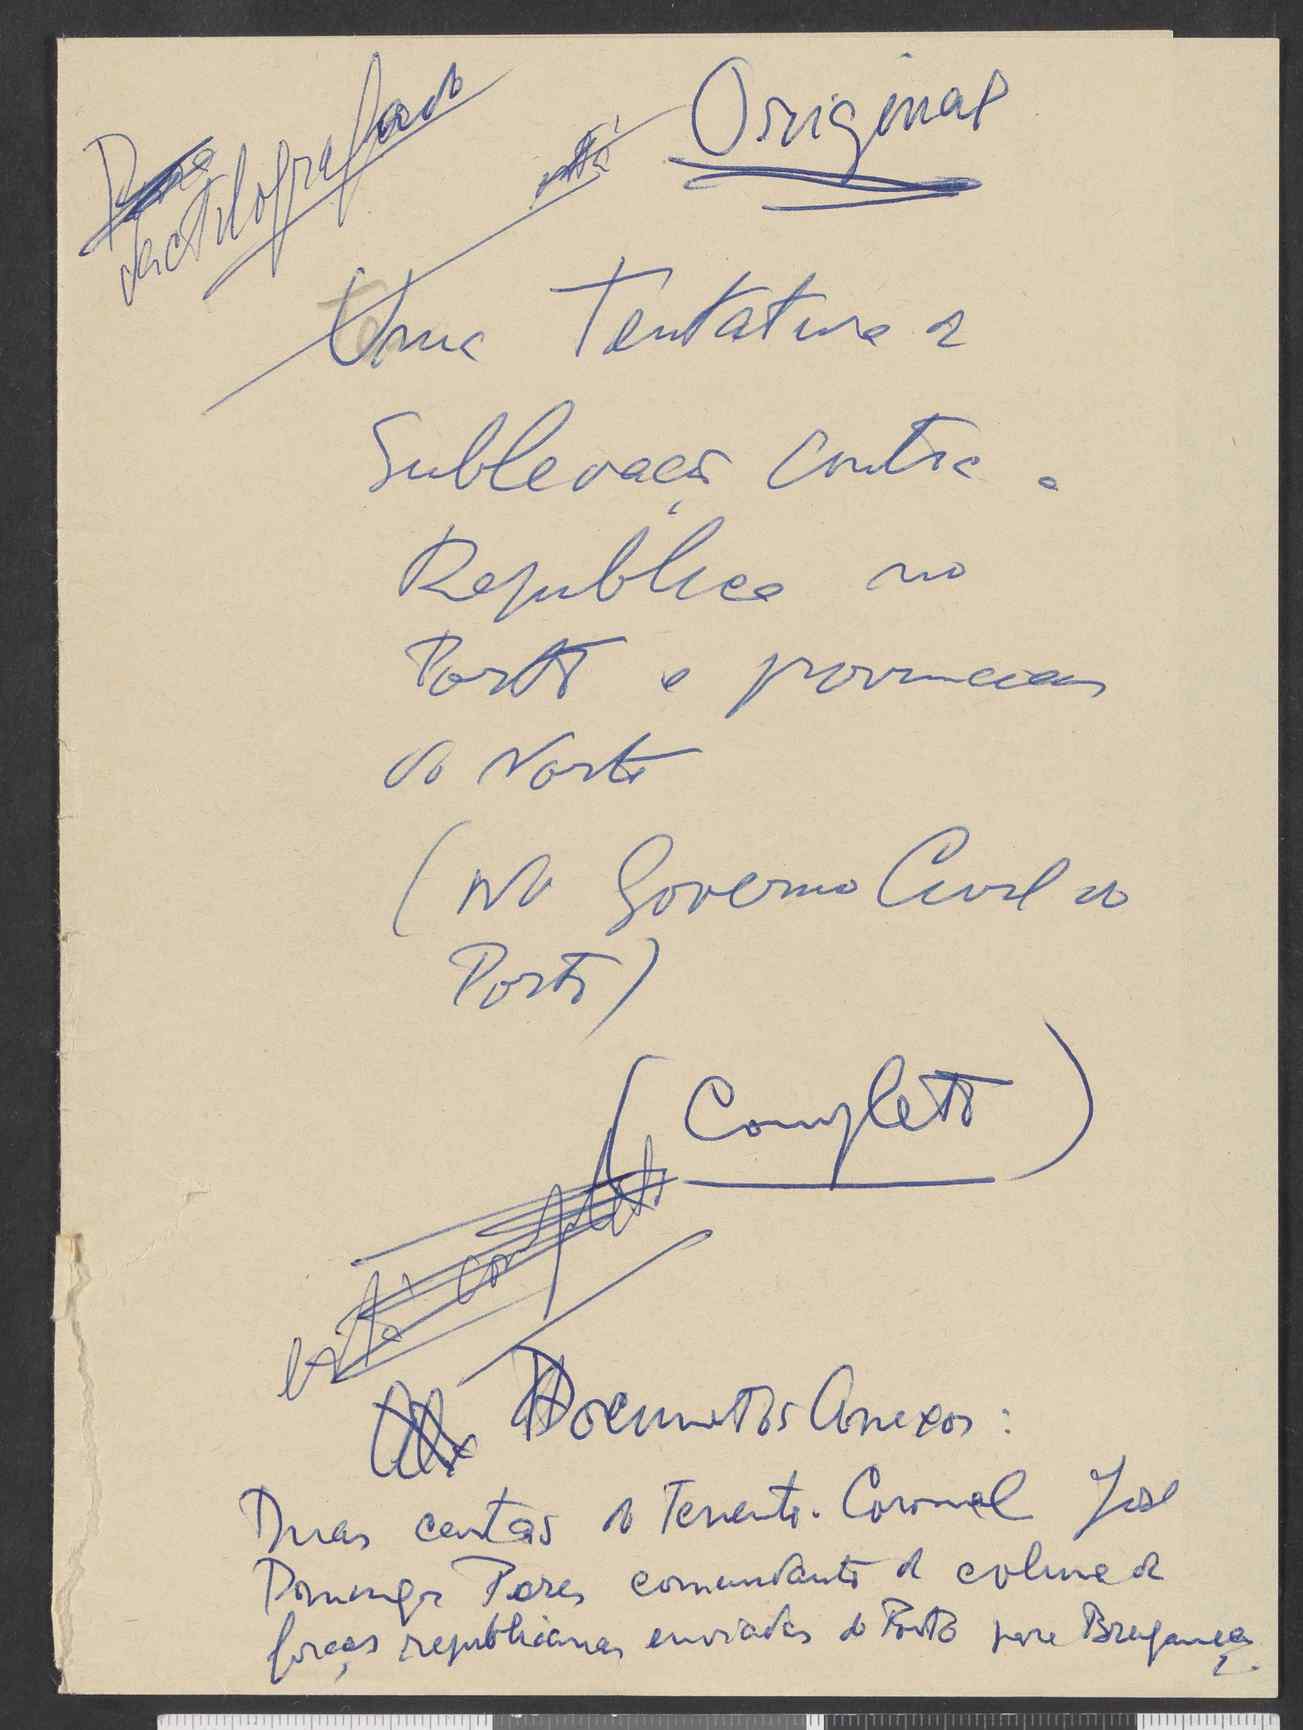 Original
dactilografado
está
Uma Tentativa de
Sublevação contra a
República no
Porto e províncias
do Norte
(No Governo Civil do
Porto)
(Completo)
está completo
Documentos Anexos:
Duas cartas do Tenente-Coronel José
Domingos Peres comandante da coluna de
forças republicanas enviadas do Porto para Bragança